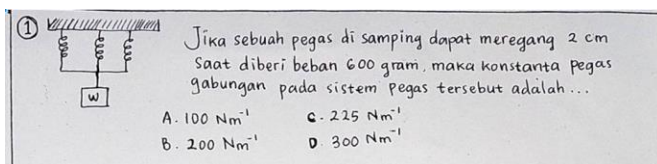 ①
Jika sebuah pegas di samping dapat meregang 2 cm
saat diberi beban 600 gram, maka konstanta pegas
gabungan pada sistem pegas tersebut adalah...
W
A. 100 Nm⁻¹ C. 225 Nm⁻¹
B. 200 Nm⁻¹ D. 300 Nm⁻¹